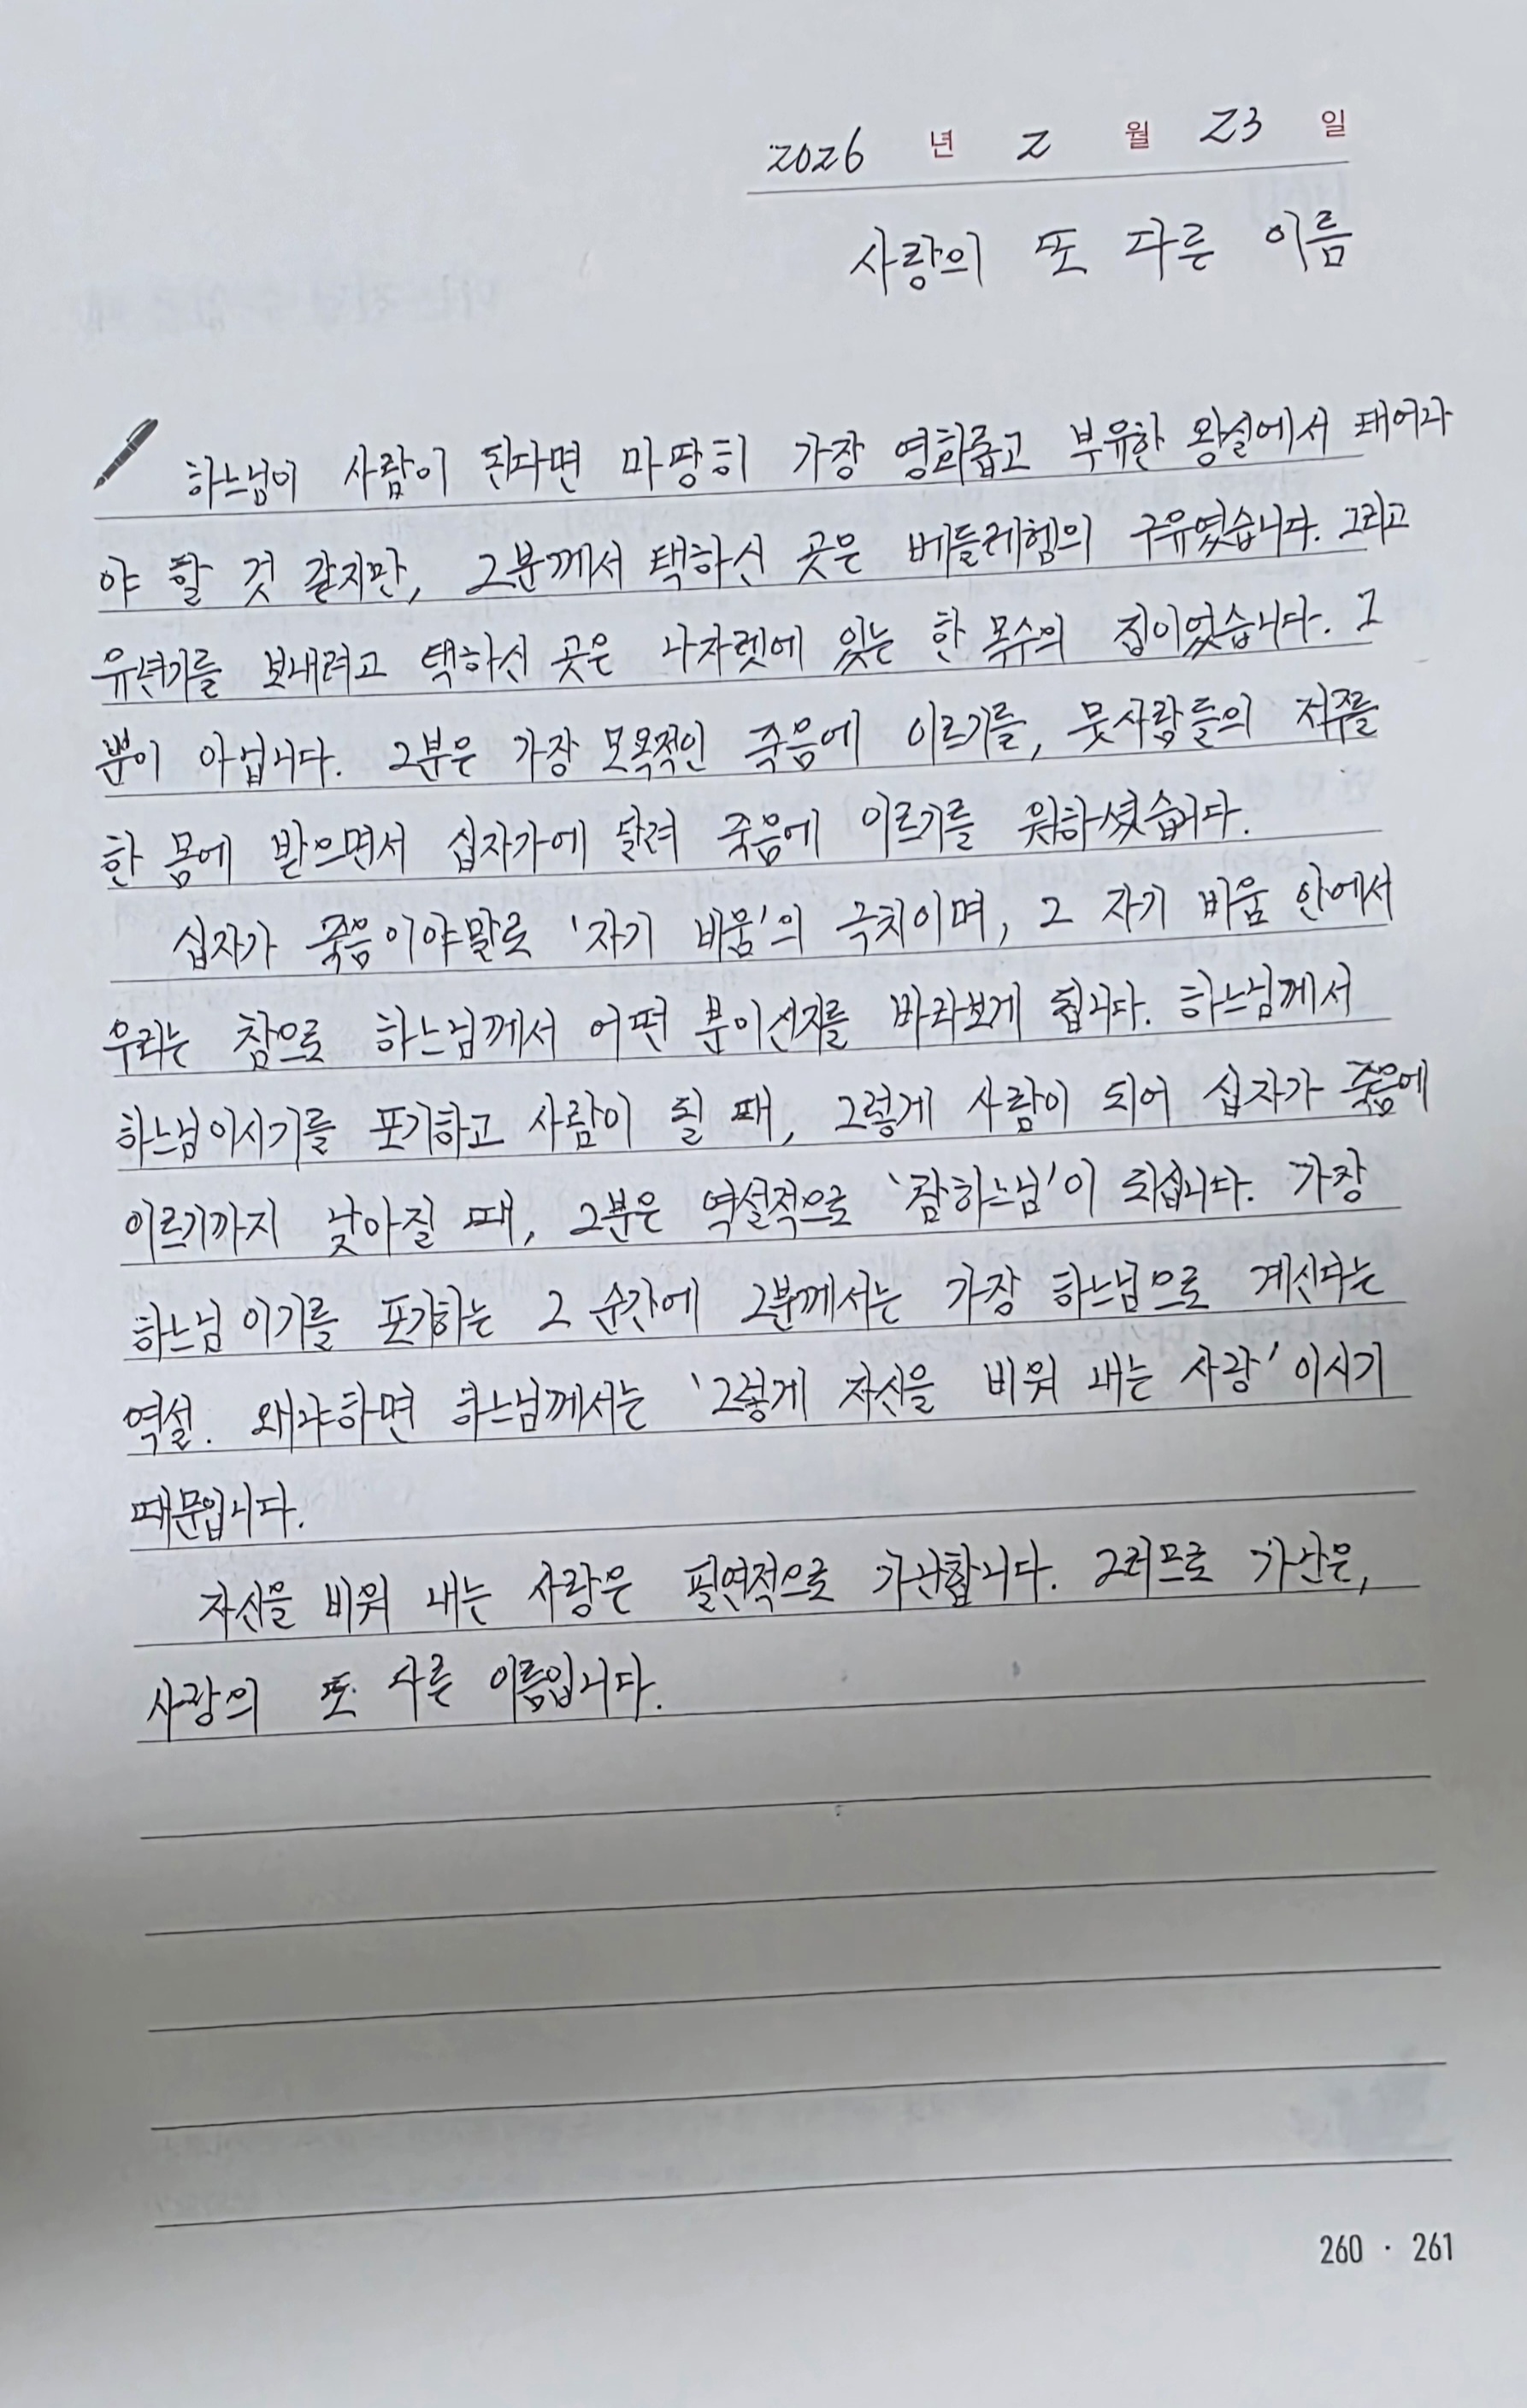 2026 년 2 월 23 일
사랑의 또 다른 이름
하느님이 사람이 된다면 마땅히 가장 영화롭고 부유한 왕실에서 태어나
야 할 것 같지만, 그분께서 택하신 곳은 베들레헴의 구유였습니다. 그리고
유년기를 보내려고 택하신 곳은 나자렛에 있는 한 목수의 집이었습니다. 그
뿐이 아닙니다. 그분은 가장 모욕적인 죽음에 이르기를, 뭇사람들의 저주를
한 몸에 받으면서 십자가에 달려 죽음에 이르기를 원하셨습니다.
십자가 죽음이야말로 '자기 비움'의 극치이며, 그 자기 비움 안에서
우리는 참으로 하느님께서 어떤 분이신지를 바라보게 됩니다. 하느님께서
하느님이시기를 포기하고 사람이 될 때, 그렇게 사람이 되어 십자가 죽음에
이르기까지 낮아질 때, 그분은 역설적으로 '참하느님'이 되십니다. 가장
하느님이기를 포기하는 그 순간에 그분께서는 가장 하느님으로 계신다는
역설. 왜냐하면 하느님께서는 '그렇게 자신을 비워 내는 사랑'이시기
때문입니다.
자신을 비워 내는 사랑은 필연적으로 가난합니다. 그러므로 가난은,
사랑의 또 다른 이름입니다.
260 · 261